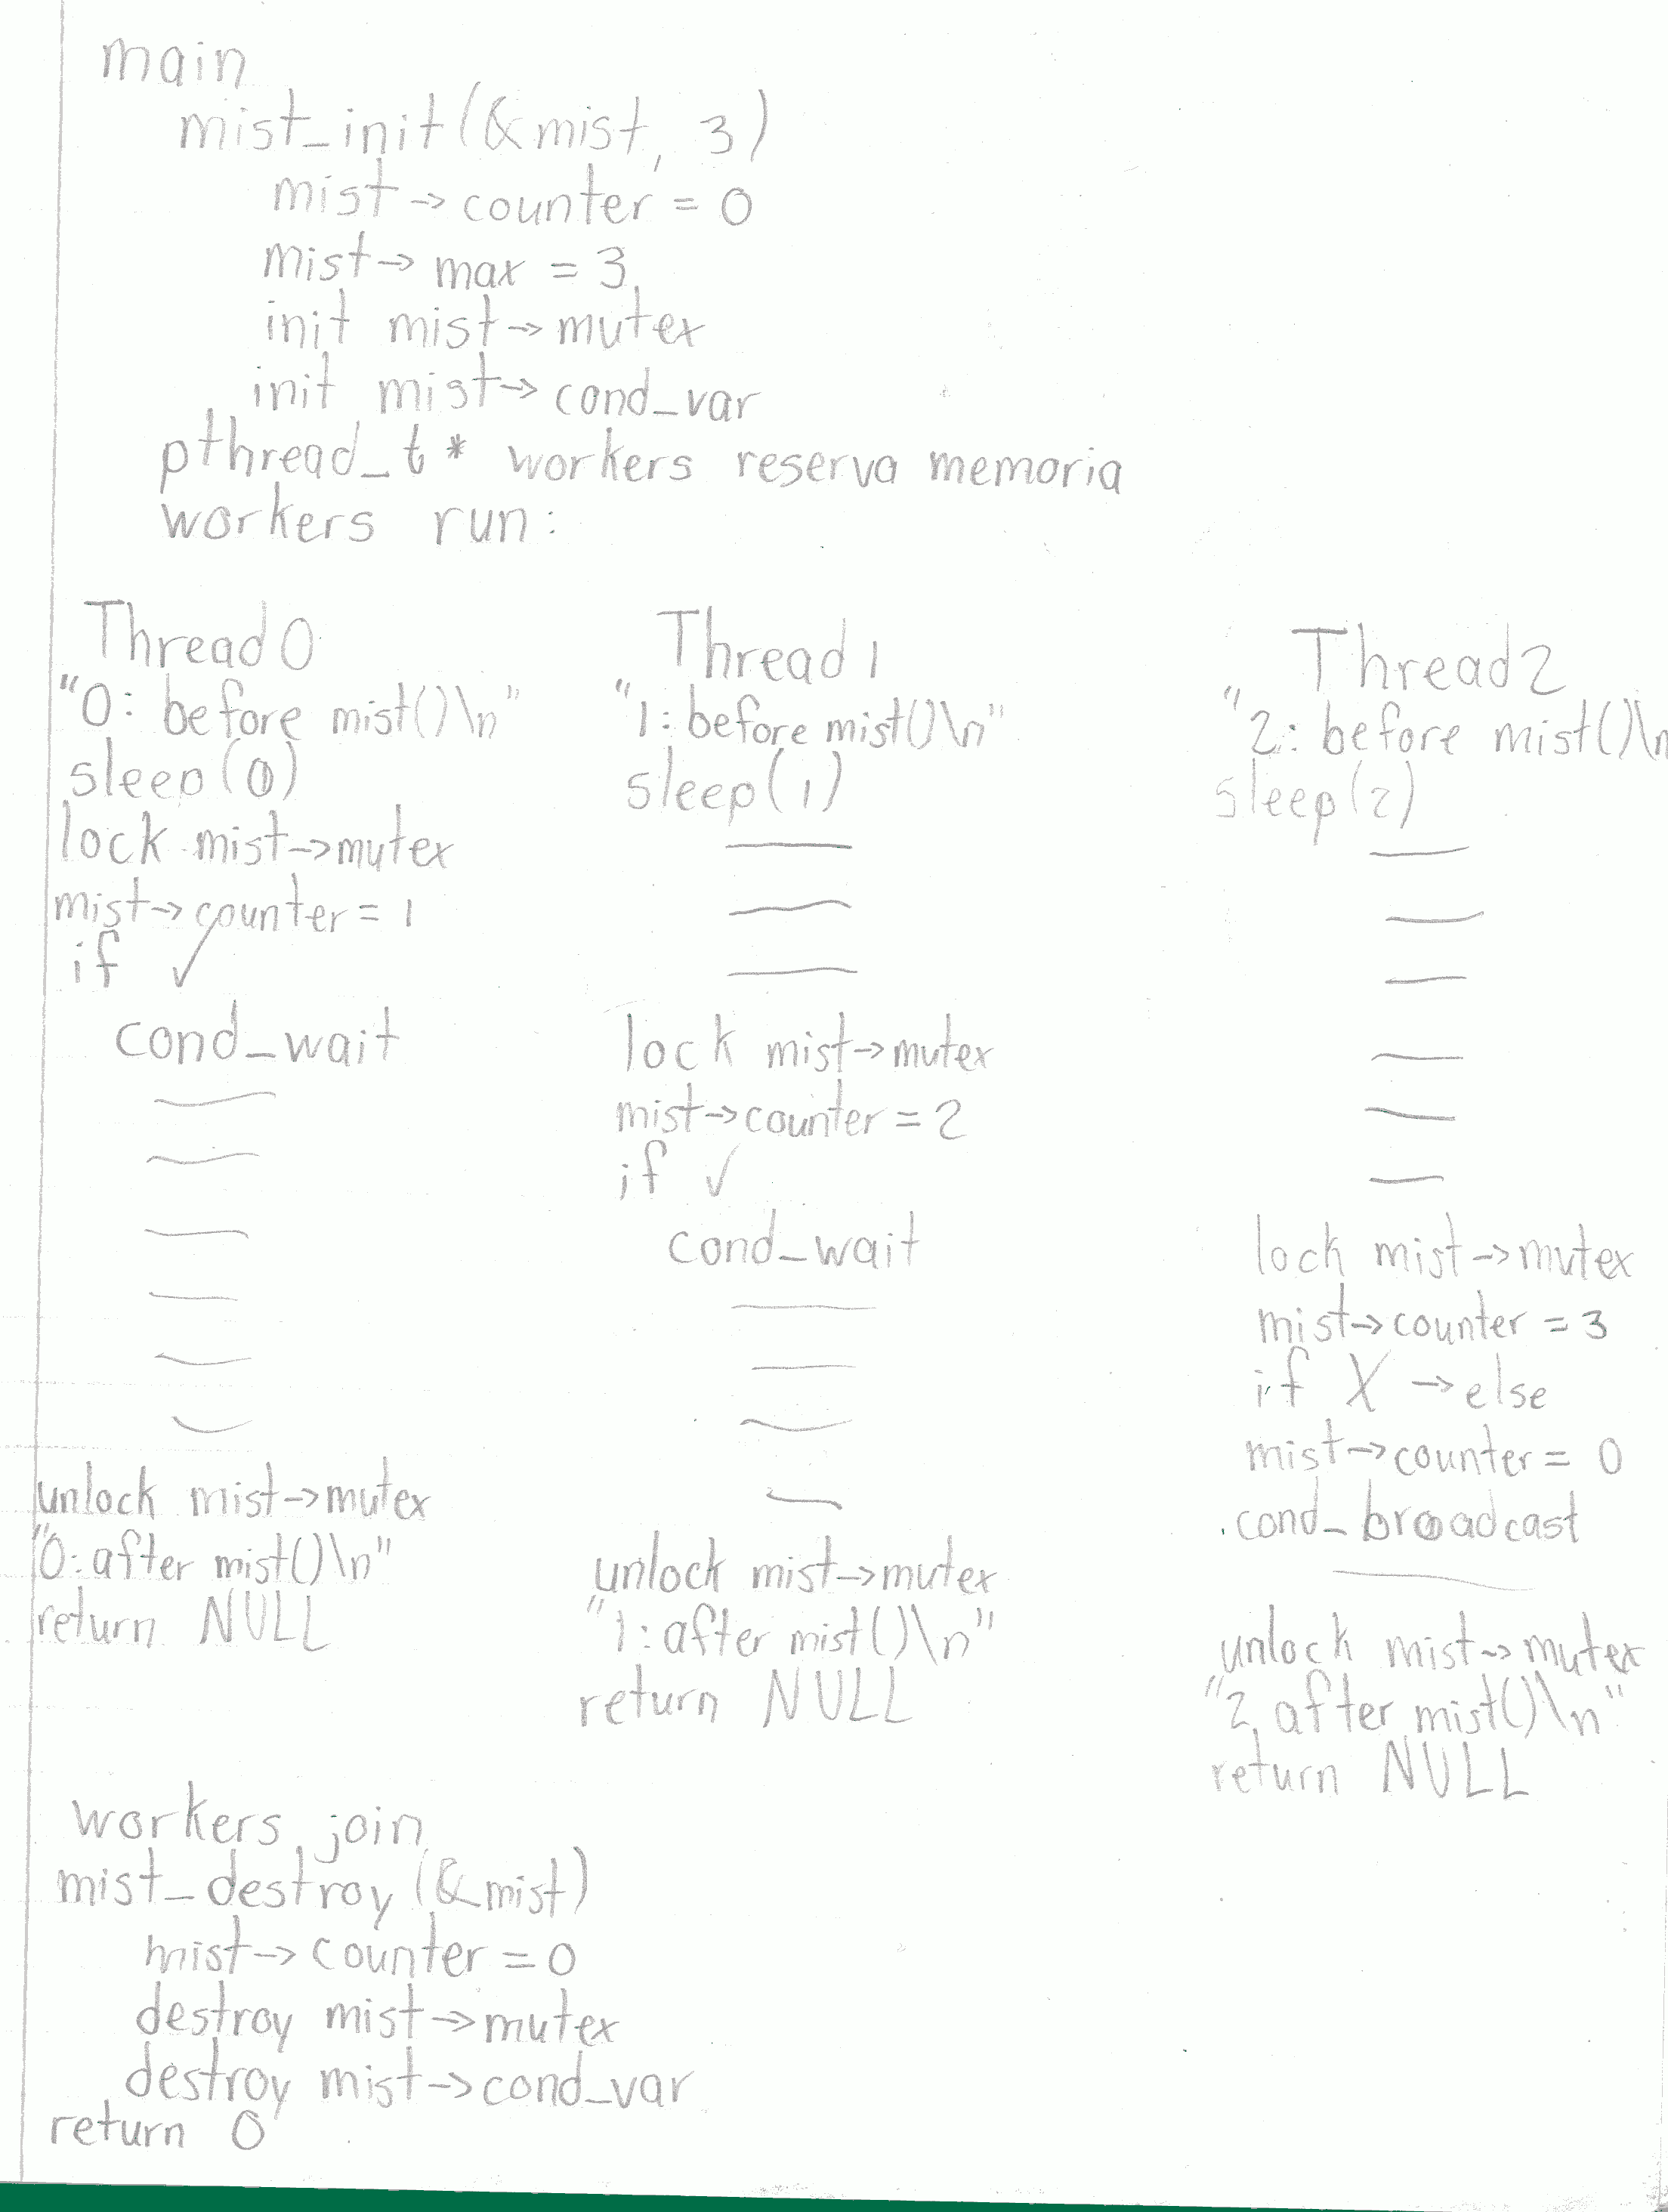 main
mist_init(&mist, 3)
mist→counter = 0
mist→max = 3
init mist→mutex
init mist→cond_var
pthread_t* workers reserva memoria
workers run:
Thread 0
"0: before mist()\n"
sleep(0)
lock mist→mutex
mist→counter = 1
if ✓
cond_wait
unlock mist→mutex
"0: after mist()\n"
return NULL
Thread 1
"1: before mist()\n"
sleep(1)
lock mist→mutex
mist→counter = 2
if ✓
cond_wait
unlock mist→mutex
"1: after mist()\n"
return NULL
Thread 2
"2: before mist()\n
sleep(2)
lock mist→mutex
mist→counter = 3
if X → else
mist→counter = 0
cond_broadcast
unlock mist→mutex
"2 after mist()\n"
return NULL
workers join
mist_destroy(&mist)
mist→counter = 0
destroy mist→mutex
destroy mist→cond_var
return 0